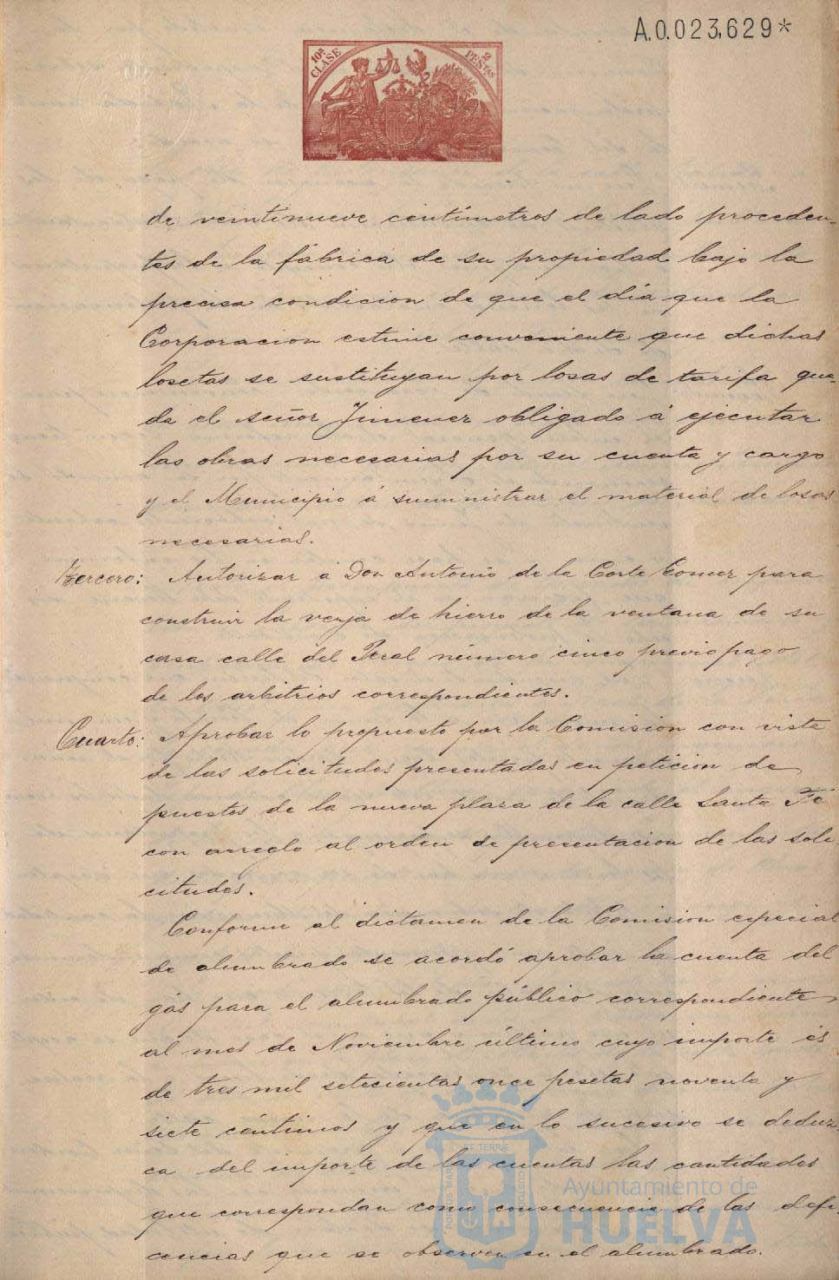 A.0.023,629*
10ª CLASE
2 PESTAS
de veintinueve centímetros de lado proceden-
tes de la fábrica de su propiedad bajo la
precisa condicion de que el día que la
Corporacion estime conveniente que dichas
losetas se sustituyan por losas de tarifa que-
da el señor Jimenez obligado á ejecutar
las obras necesarias por su cuenta y cargo
y el Municipio á suministrar el material de losas
necesarias.
Tercero: Autorizar á Don Antonio de la Corte Gomez para
construir la verja de hierro de la ventana de su
casa calle del Peral número cinco previo pago
de los arbitrios correspondientes.
Cuarto: Aprobar lo propuesto por la Comision con vista
de las solicitudes presentadas en peticion de
puestos de la nueva plaza de la calle Santa Fé
con arreglo al orden de presentacion de las soli
citudes.
Conforme al dictamen de la Comision especial
de alumbrado se acordó aprobar la cuenta del
gás para el alumbrado público correspondiente
al mes de Noviembre último cuyo importe es
de tres mil setecientas once pesetas noventa y
siete céntimos y que en lo sucesivo se deduz-
ca del importe de las cuentas las cantidades
que correspondan como consecuencia de las defi-
ciencias que se observen en el alumbrado.
Ayuntamiento de
HUELVA